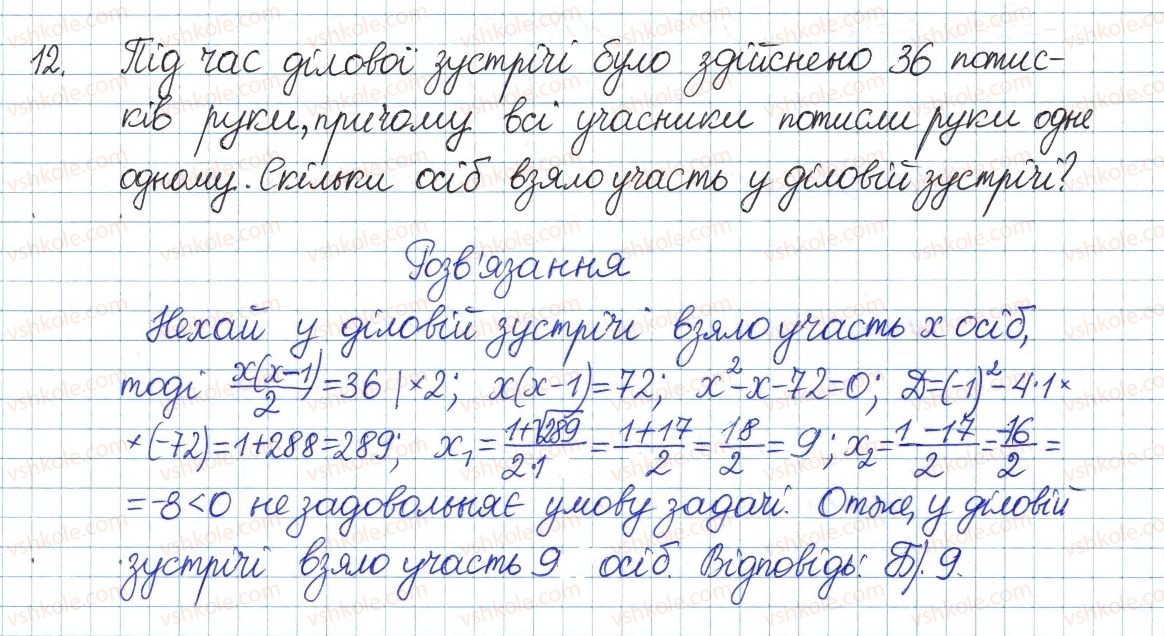 12. Під час ділової зустрічі було здійснено 36 потис-
ків руки, причому всі учасники потисли руки одне
одному. Скільки осіб взяло участь у діловій зустрічі?
Розв'язання
Нехай у діловій зустрічі взяло участь x осіб,
тоді x(x-1)/2=36 |×2; x(x-1)=72; x²-x-72=0; Д=(-1)²-4·1×
×(-72)=1+288=289; x₁=(1+√289)/(2·1)=(1+17)/2=18/2=9; x₂=(1-17)/2=-16/2=
=-8<0 не задовольняє умову задачі. Отже, у діловій
зустрічі взяло участь 9 осіб. Відповідь: Б). 9.